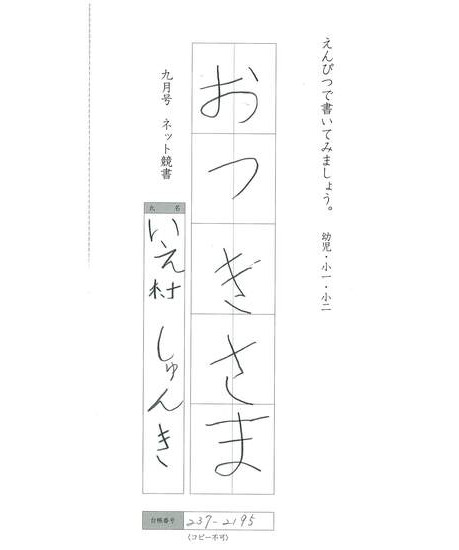 えんぴつで書いてみましょう。
幼児・小一・小二
おつぎさま
九月号 ネット競書
氏名
いえ村 しゅんき
台帳番号 237-2195
(コピー不可)